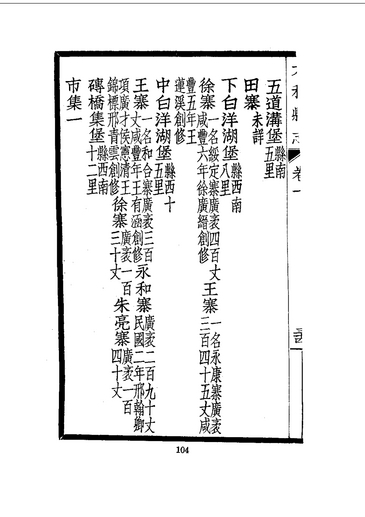 卷一
五道溝堡縣南五里
田寨未詳
下白洋湖堡縣西南八里
徐寨一名綏定寨廣袤四百丈咸豐六年徐廣縉創修王寨一名永康寨廣袤三百四十五丈咸
豐五年王蓮溪創修
中白洋湖堡縣西十里
王寨一名和合寨廣袤三百丈咸豐年王有涵創修永和寨廣袤二百九十丈民國二年邢翰卿
項廣才侯憲清王錦標邢青雲創修徐寨廣袤一百三十丈朱亮寨廣袤一百四十丈
磚橋集堡縣西南十二里
市集一
104